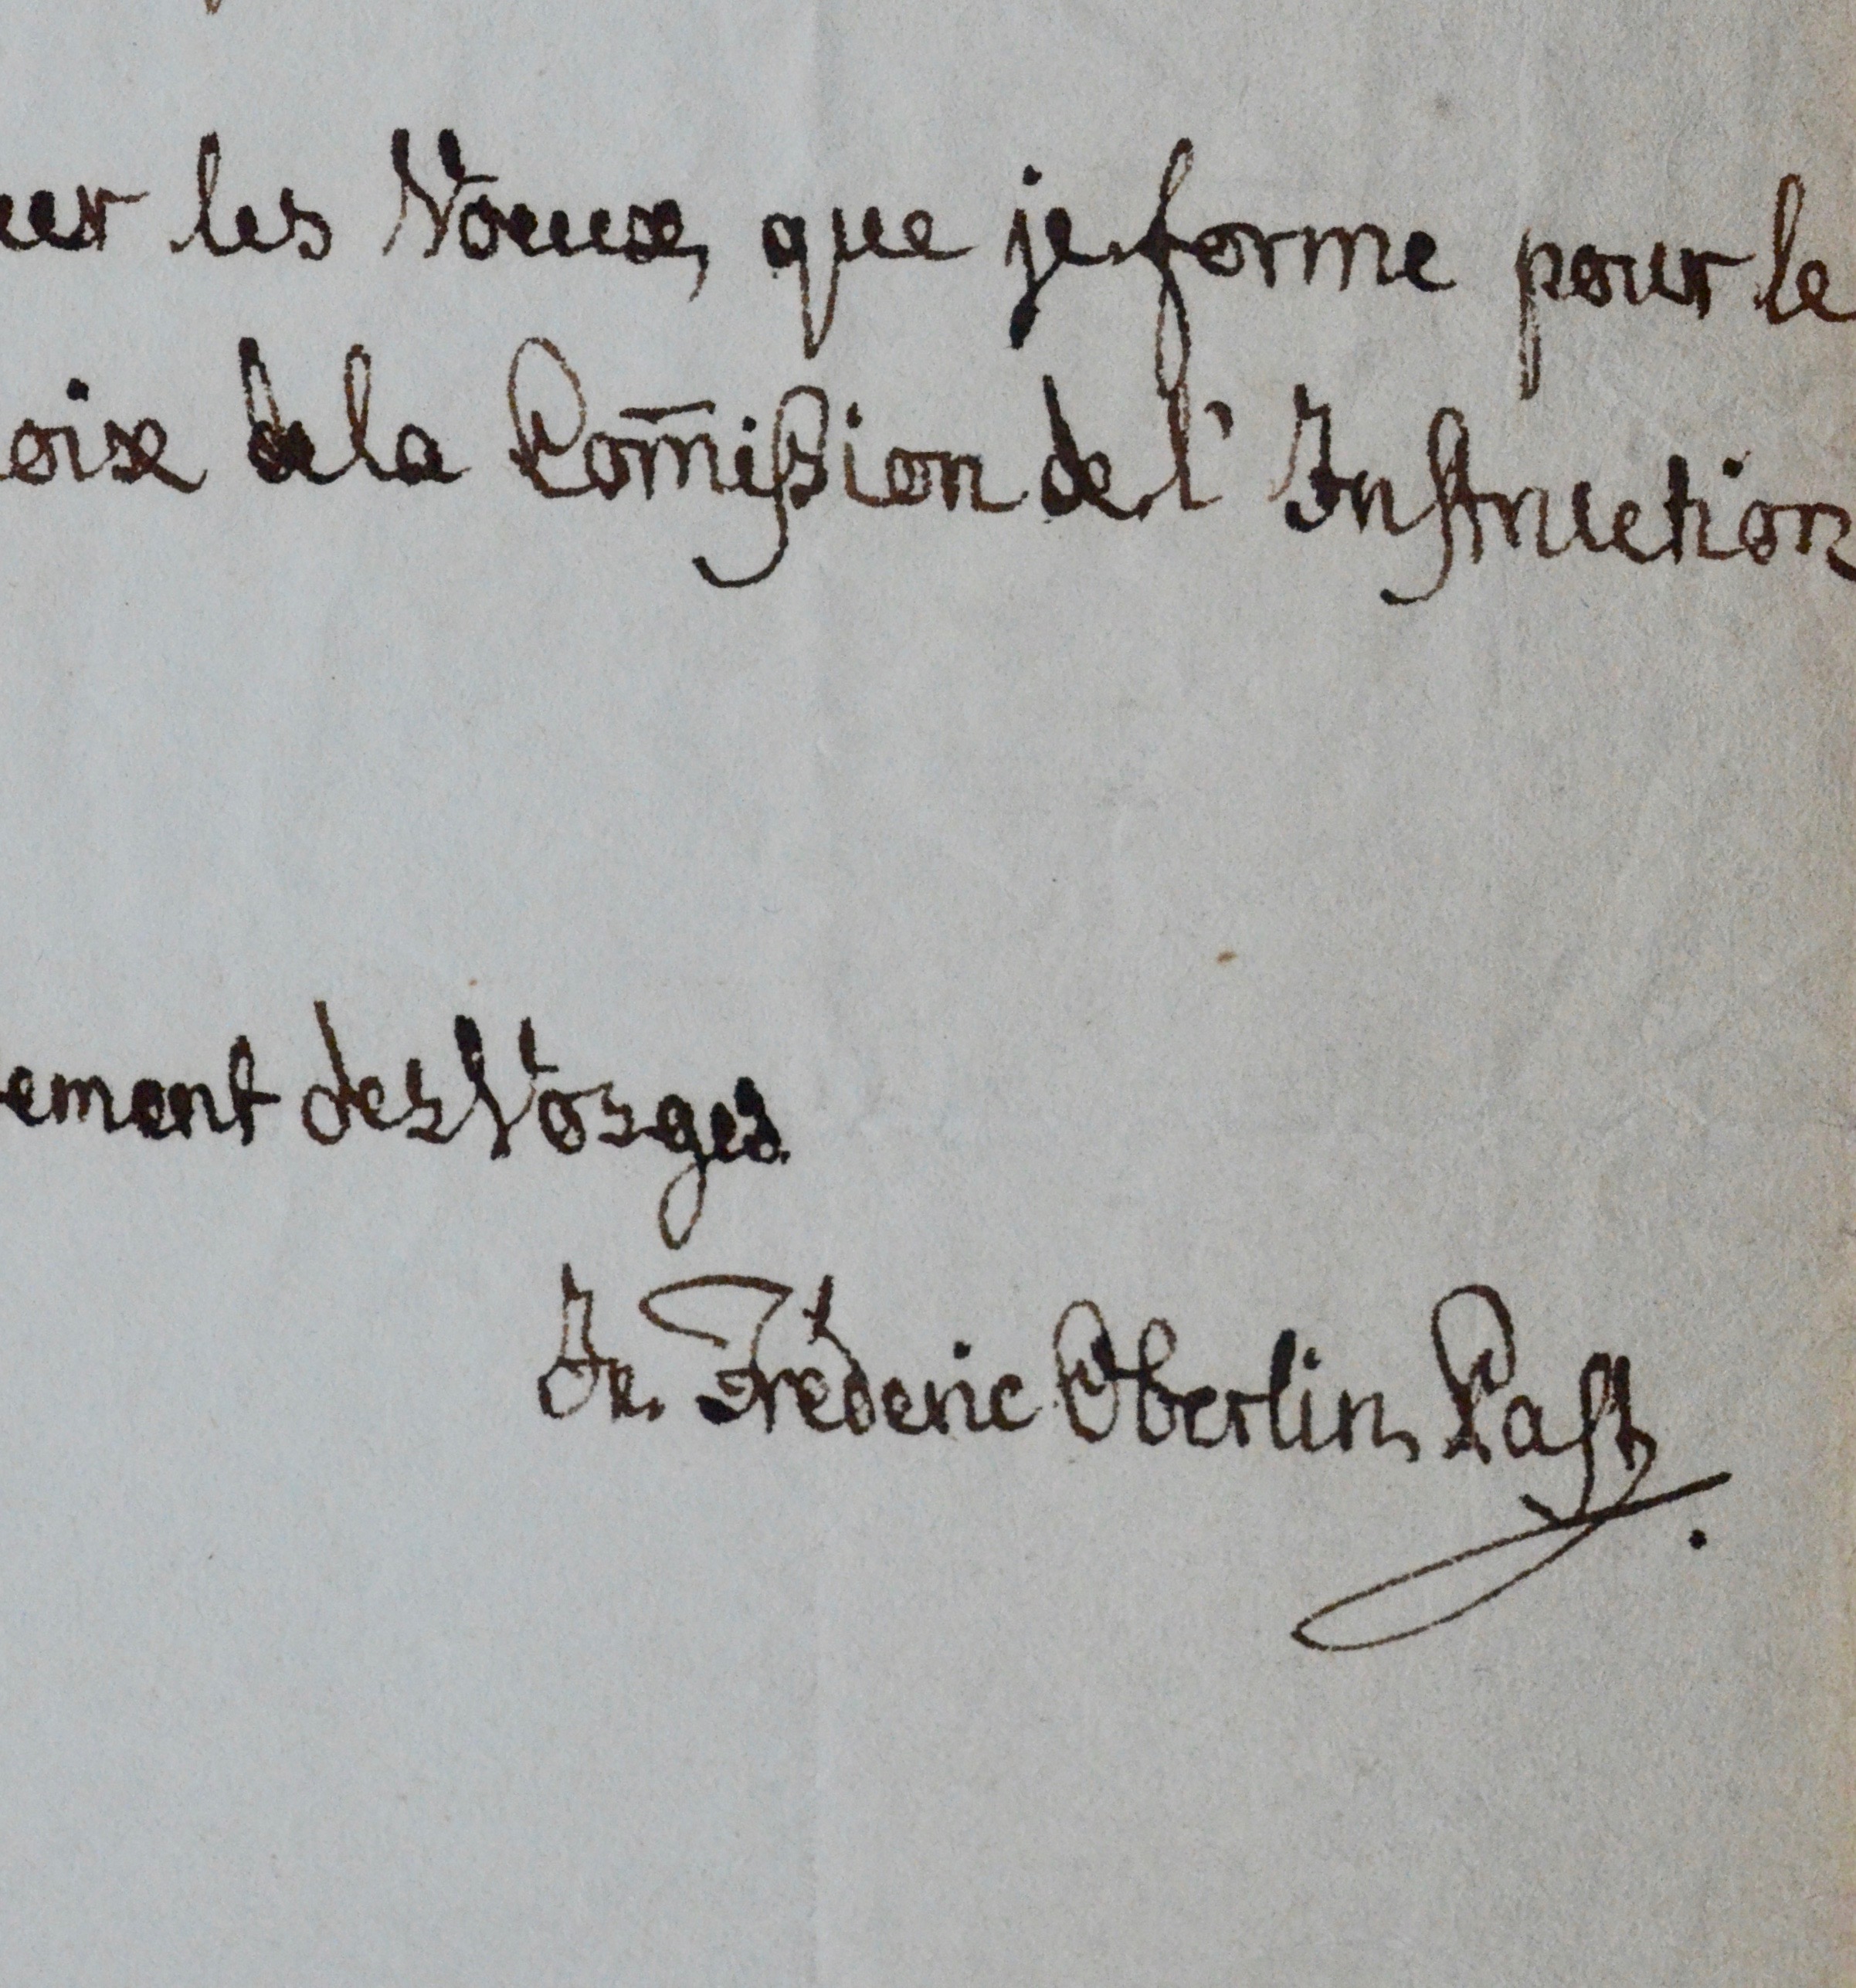 uer les Voeux, que je forme pour le
oix de la Com̄ißion de l'Instruction
ement des Vosges.
Jn. Fréderic Oberlin, Past.